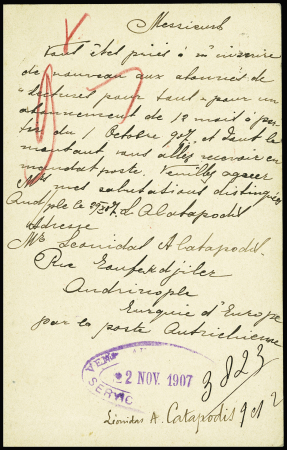 Messieurs
Vous êtes priés à m'inscrire
de nouveau aux abonnés de
"lectures pour tous" pour un
abonnement de 12 mois à par-
tir du 1 Octobre 907, et dont le
montant vous allez recevoir en
mandat poste. Veuillez agréer
mes salutations distinguées
Andple le L. Alatapodis
Adresse
Mr Leonidas A. Catapodis
Rue
Andrinople
Turquie d'Europe
par la poste Autrichienne
2 NOV. 1907
SERVIC
3823
Léonidas A. Catapodis 9 et 2